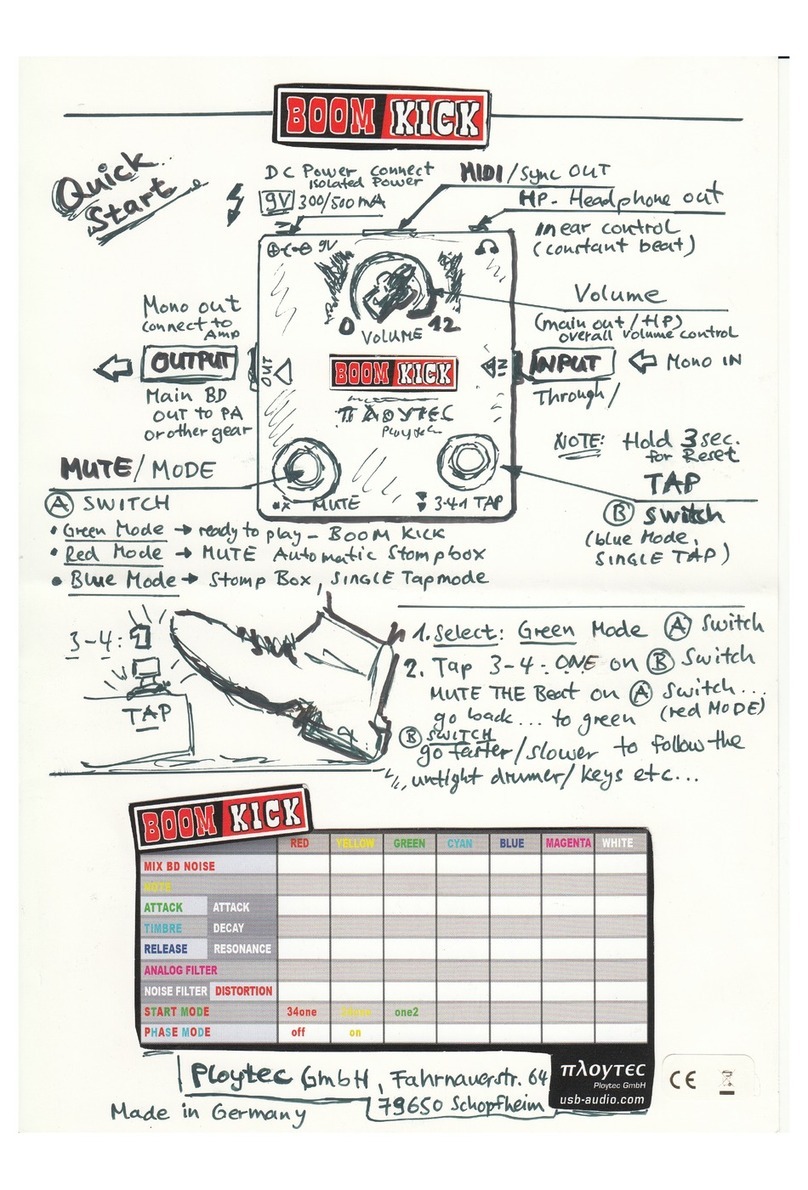 BOOM KICK
Quick
Start
DC Power connect
isolated Power
9V 300/500mA
MIDI/Sync OUT
HP- Headphone out
in ear control
(constant beat)
9V
0
12
VOLUME
Volume
(main out/HP)
overall volume control
Mono out
connect to
Amp
OUTPUT
Main BD
OUT to PA
or other gear
OUT
BOOM KICK
πλογτεc
Ploytec
IN
INPUT
Mono IN
Through/
NOTE: Hold 3 sec.
for Reset
MUTE/MODE
MUTE
3-4-1 TAP
TAP
B Switch
(blue Mode,
SINGLE TAP)
A SWITCH
• Green Mode → ready to play - BOOM KICK
• Red Mode → MUTE Automatic Stompbox
• Blue Mode → Stomp Box, SINGLE Tapmode
3-4:
TAP
1. Select: Green Mode A Switch
2. Tap 3-4-ONE on B Switch
MUTE THE Beat on A Switch...
go back... to green (red MODE)
B SWITCH
go faster/slower to follow the
untight drummer/keys etc...
BOOM KICK
RED YELLOW GREEN CYAN BLUE MAGENTA WHITE
MIX BD NOISE
NOTE
ATTACK ATTACK
TIMBRE DECAY
RELEASE RESONANCE
ANALOG FILTER
NOISE FILTER DISTORTION
START MODE 34one one2
PHASE MODE off on
Ploytec GmbH, Fahrnauerstr. 64
79650 Schopfheim
Made in Germany
πλογτεc
Ploytec GmbH
usb-audio.com
CE